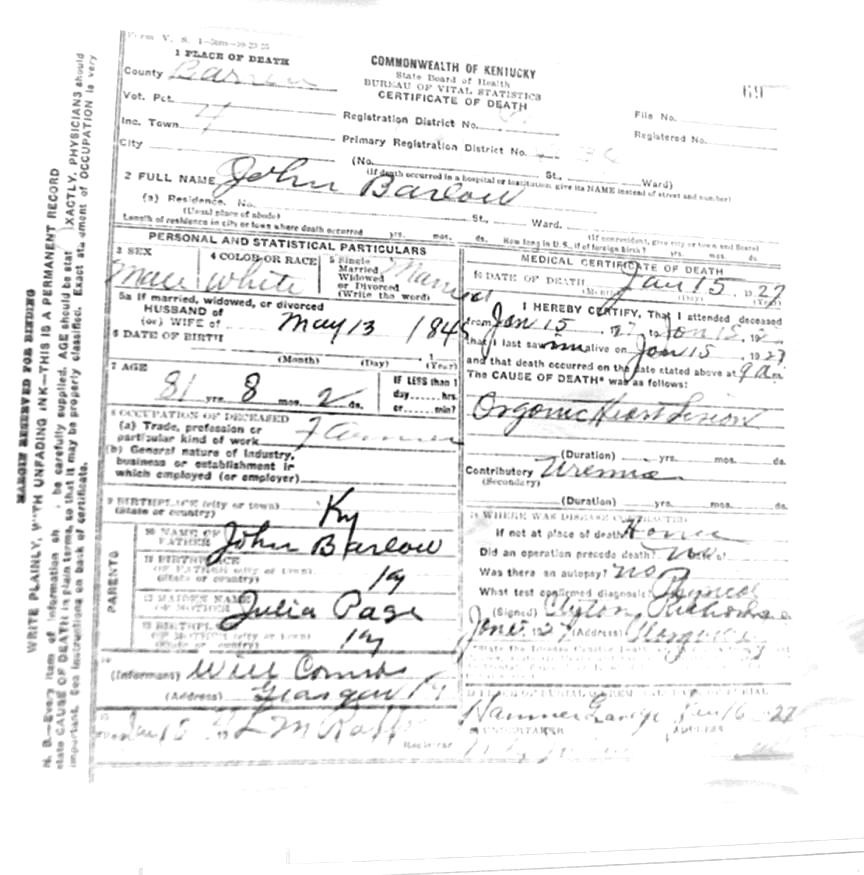 Form V. S. 1
1 PLACE OF DEATH
County Barren
Vot. Pct.
Inc. Town 4
City
COMMONWEALTH OF KENTUCKY
State Board of Health
BUREAU OF VITAL STATISTICS
CERTIFICATE OF DEATH
69
Registration District No.
File No.
Primary Registration District No.
Registered No.
(No. St., Ward)
(If death occurred in a hospital or institution give its NAME instead of street and number)
2 FULL NAME John Barlow
(a) Residence. No. St., Ward.
(Usual place of abode) (If nonresident, give city or town and State)
Length of residence in city or town where death occurred yrs. mos. ds. How long in U.S., if of foreign birth? yrs. mos. ds.
PERSONAL AND STATISTICAL PARTICULARS
3 SEX 4 COLOR OR RACE 5 Single
Married
Widowed
or Divorced
(Write the word)
Male White Married
5a If married, widowed, or divorced
HUSBAND of
(or) WIFE of
6 DATE OF BIRTH May 13 184
(Month) (Day) (Year)
7 AGE
81 yrs. 8 mos. 2 ds.
IF LESS than 1
day hrs.
or min?
8 OCCUPATION OF DECEASED
(a) Trade, profession or
particular kind of work Farmer
(b) General nature of industry,
business or establishment in
which employed (or employer)
9 BIRTHPLACE (city or town)
(State or country) Ky
PARENTS
10 NAME OF
FATHER John Barlow
11 BIRTHPLACE
OF FATHER (city or town)
(State or country) Ky
12 MAIDEN NAME
OF MOTHER Julia Page
13 BIRTHPLACE
OF MOTHER (city or town)
(State or country) Ky
14
(Informant) Will
(Address) Glasgow Ky
15
Registrar
MEDICAL CERTIFICATE OF DEATH
16 DATE OF DEATH Jan 15, 1927
(Day)
I HEREBY CERTIFY, That I attended deceased
from Jan 15, 27 to Jan 15, 192
that I last saw him alive on Jan 15, 1927
and that death occurred on the date stated above at 9 a.m.
The CAUSE OF DEATH* was as follows:
Organic Heart Lesion
(Duration) yrs. mos. ds.
Contributory Uremia
(Secondary)
(Duration) yrs. mos. ds.
18 WHERE WAS DISEASE CONTRACTED
If not at place of death? Home
Did an operation precede death? no Date of
Was there an autopsy? no
What test confirmed diagnosis? Physical
(Signed) Clifton
(Address) Glasgow
Jan 16 1927
20 UNDERTAKER ADDRESS
MARGIN RESERVED FOR BINDING
WRITE PLAINLY, WITH UNFADING INK—THIS IS A PERMANENT RECORD
N. B.—Every item of information be carefully supplied. AGE should be EXACTLY. PHYSICIANS should
state CAUSE OF DEATH in plain terms, so that it may be properly classified. Exact statement of OCCUPATION is very
important. See instructions on back of certificate.